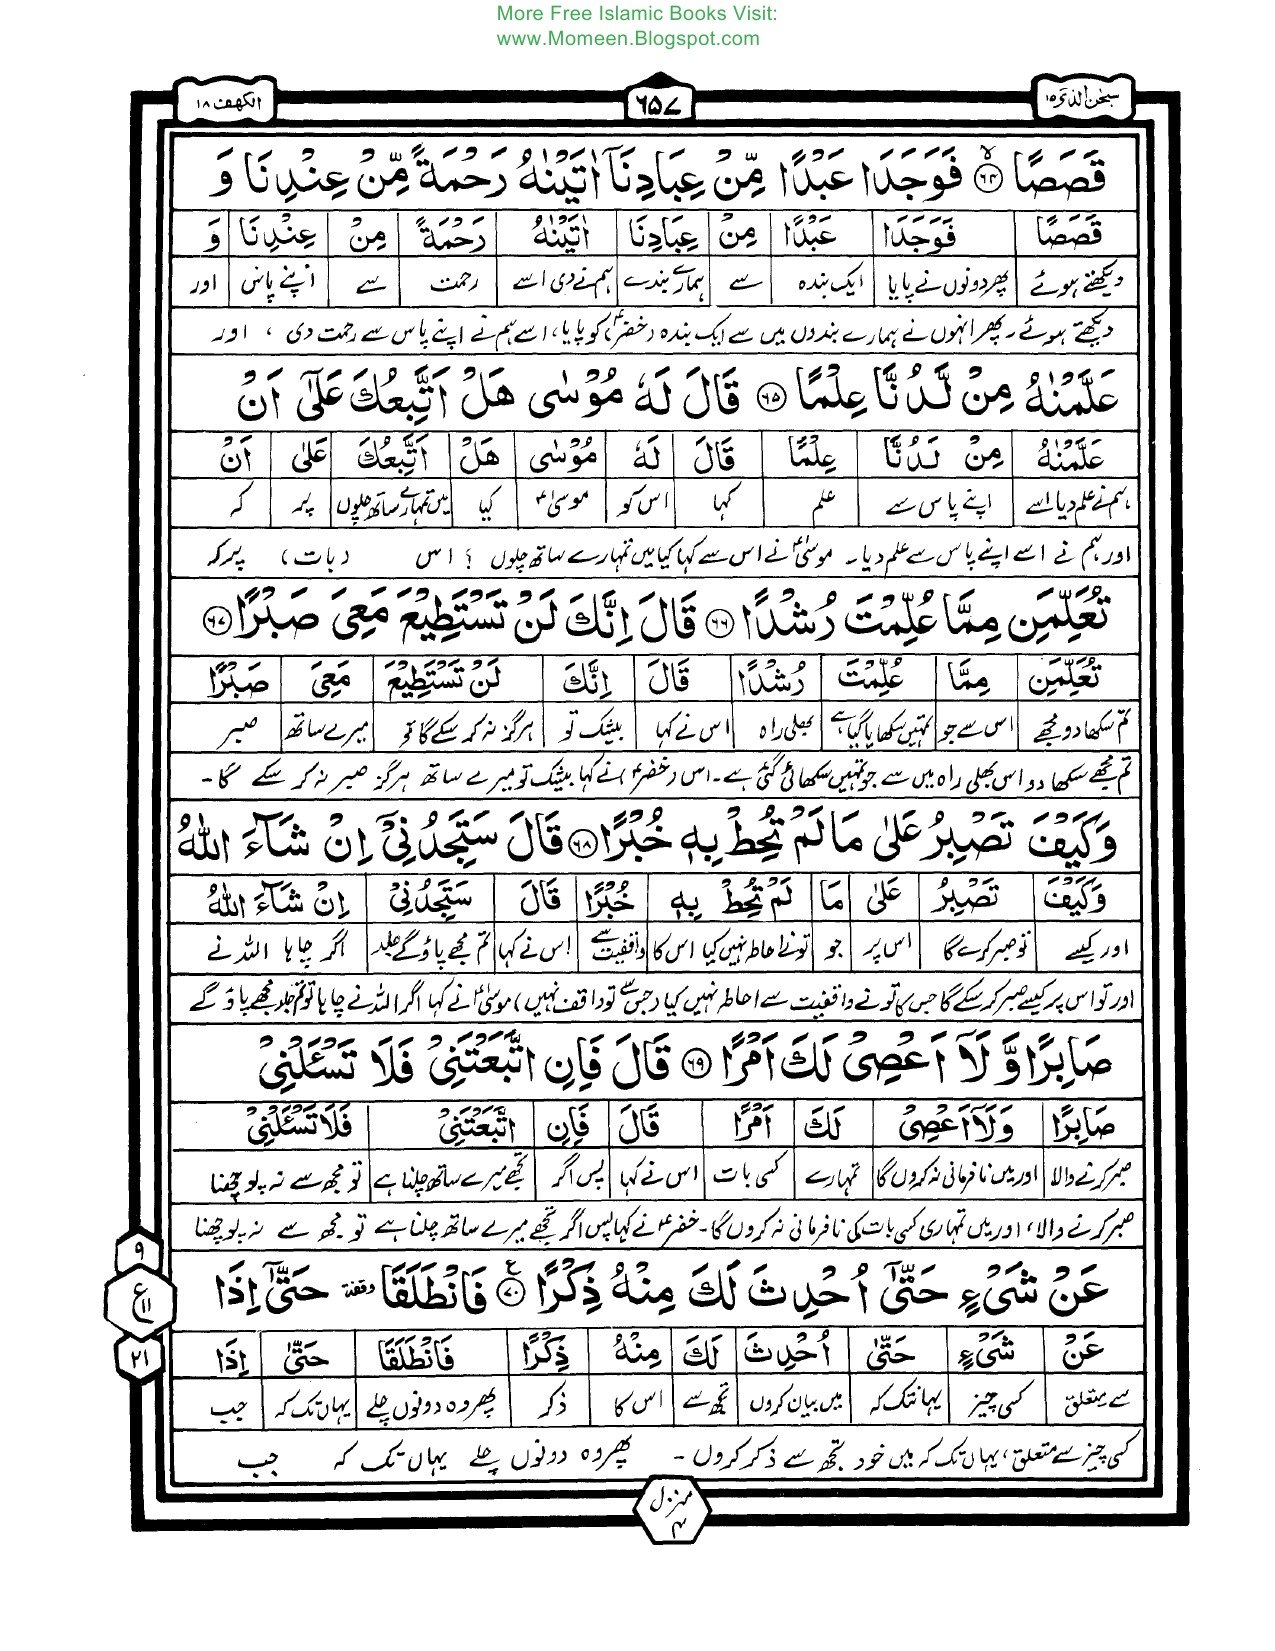 More Free Islamic Books Visit:
www.Momeen.Blogspot.com
سبحن الذی ۱۵ ۶۵۷ الکھف ۱۸
قَصَصًا ﴿۶۴﴾ فَوَجَدَا عَبْدًا مِّنْ عِبَادِنَآ اٰتَيْنٰهُ رَحْمَةً مِّنْ عِنْدِنَا وَ
قَصَصًا فَوَجَدَا عَبْدًا مِنْ عِبَادِنَا اٰتَيْنٰهُ رَحْمَةً مِنْ عِنْدِنَا وَ
دیکھتے ہوئے پھر دونوں نے پایا ایک بندہ سے ہمارے بندے ہم نے دی اسے رحمت سے اپنے پاس اور
دیکھتے ہوئے۔ پھر انہوں نے ہمارے بندوں میں سے ایک بندہ (خضرؑ) کو پایا، اسے ہم نے اپنے پاس سے رحمت دی ، اور
عَلَّمْنٰهُ مِنْ لَّدُنَّا عِلْمًا ﴿۶۵﴾ قَالَ لَهٗ مُوْسٰى هَلْ اَتَّبِعُكَ عَلٰٓى اَنْ
عَلَّمْنٰهُ مِنْ لَدُنَّا عِلْمًا قَالَ لَهٗ مُوْسٰى هَلْ اَتَّبِعُكَ عَلٰى اَنْ
ہم نے علم دیا اسے اپنے پاس سے علم کہا اس کو موسیٰؑ کیا میں تمہارے ساتھ چلوں پر کہ
اور ہم نے اسے اپنے پاس سے علم دیا۔ موسیٰؑ نے اس سے کہا کیا میں تمہارے ساتھ چلوں ؟ اس (بات) پر کہ
تُعَلِّمَنِ مِمَّا عُلِّمْتَ رُشْدًا ﴿۶۶﴾ قَالَ اِنَّكَ لَنْ تَسْتَطِيْعَ مَعِىَ صَبْرًا ﴿۶۷﴾
تُعَلِّمَنِ مِمَّا عُلِّمْتَ رُشْدًا قَالَ اِنَّكَ لَنْ تَسْتَطِيْعَ مَعِىَ صَبْرًا
تم سکھا دو مجھے اس سے جو تمہیں سکھایا گیا ہے بھلی راہ اس نے کہا بیشک تو ہرگز نہ کر سکے گا تو میرے ساتھ صبر
تم مجھے سکھا دو اس بھلی راہ میں سے جو تمہیں سکھائی گئی ہے۔ اس (خضرؑ) نے کہا بیشک تو میرے ساتھ ہرگز صبر نہ کر سکے گا۔
وَكَيْفَ تَصْبِرُ عَلٰى مَا لَمْ تُحِطْ بِهٖ خُبْرًا ﴿۶۸﴾ قَالَ سَتَجِدُنِىْٓ اِنْ شَآءَ اللّٰهُ
وَكَيْفَ تَصْبِرُ عَلٰى مَا لَمْ تُحِطْ بِهٖ خُبْرًا قَالَ سَتَجِدُنِىْٓ اِنْ شَآءَ اللّٰهُ
اور کیسے تو صبر کرے گا اس پر جو تو نے احاطہ نہیں کیا اس کا واقفیت سے اس نے کہا تم مجھے پاؤ گے جلد اگر چاہا اللہ نے
اور تو اس پر کیسے صبر کر سکے گا جس کا تو نے واقفیت سے احاطہ نہیں کیا (جس سے تو واقف نہیں) موسیٰؑ نے کہا اگر اللہ نے چاہا تو تم جلد مجھے پاؤ گے
صَابِرًا وَّ لَآ اَعْصِىْ لَكَ اَمْرًا ﴿۶۹﴾ قَالَ فَاِنِ اتَّبَعْتَنِىْ فَلَا تَسْـَٔلْنِىْ
صَابِرًا وَلَآ اَعْصِىْ لَكَ اَمْرًا قَالَ فَاِنِ اتَّبَعْتَنِىْ فَلَا تَسْـَٔلْنِىْ
صبر کرنے والا اور میں نافرمانی نہ کروں گا تمہارے کسی بات اس نے کہا پس اگر تجھے میرے ساتھ چلنا ہے تو مجھ سے نہ پوچھنا
صبر کرنے والا، اور میں تمہاری کسی بات کی نافرمانی نہ کروں گا۔ خضرؑ نے کہا پس اگر تجھے میرے ساتھ چلنا ہے تو مجھ سے نہ پوچھنا
عَنْ شَىْءٍ حَتّٰىٓ اُحْدِثَ لَكَ مِنْهُ ذِكْرًا ﴿۷۰﴾ ع فَانْطَلَقَا وقفة حَتّٰىٓ اِذَا
عَنْ شَىْءٍ حَتّٰى اُحْدِثَ لَكَ مِنْهُ ذِكْرًا فَانْطَلَقَا حَتّٰى اِذَا
سے متعلق کسی چیز یہانتک کہ میں بیان کروں تجھ سے اس کا ذکر پھر وہ دونوں چلے یہاں تک کہ جب
کسی چیز سے متعلق، یہاں تک کہ میں خود تجھ سے ذکر کروں ۔ پھر وہ دونوں چلے یہاں تک کہ جب
۹
ع ۱۱
۲۱
منزل ۴